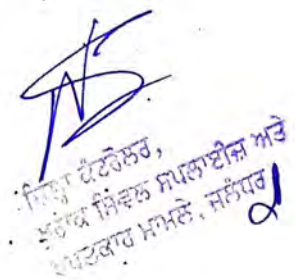 ਜ਼ਿਲ੍ਹਾ ਕੰਟਰੋਲਰ,
ਖੁਰਾਕ ਸਿਵਲ ਸਪਲਾਈਜ਼ ਅਤੇ
ਖਪਤਕਾਰ ਮਾਮਲੇ, ਜਲੰਧਰ